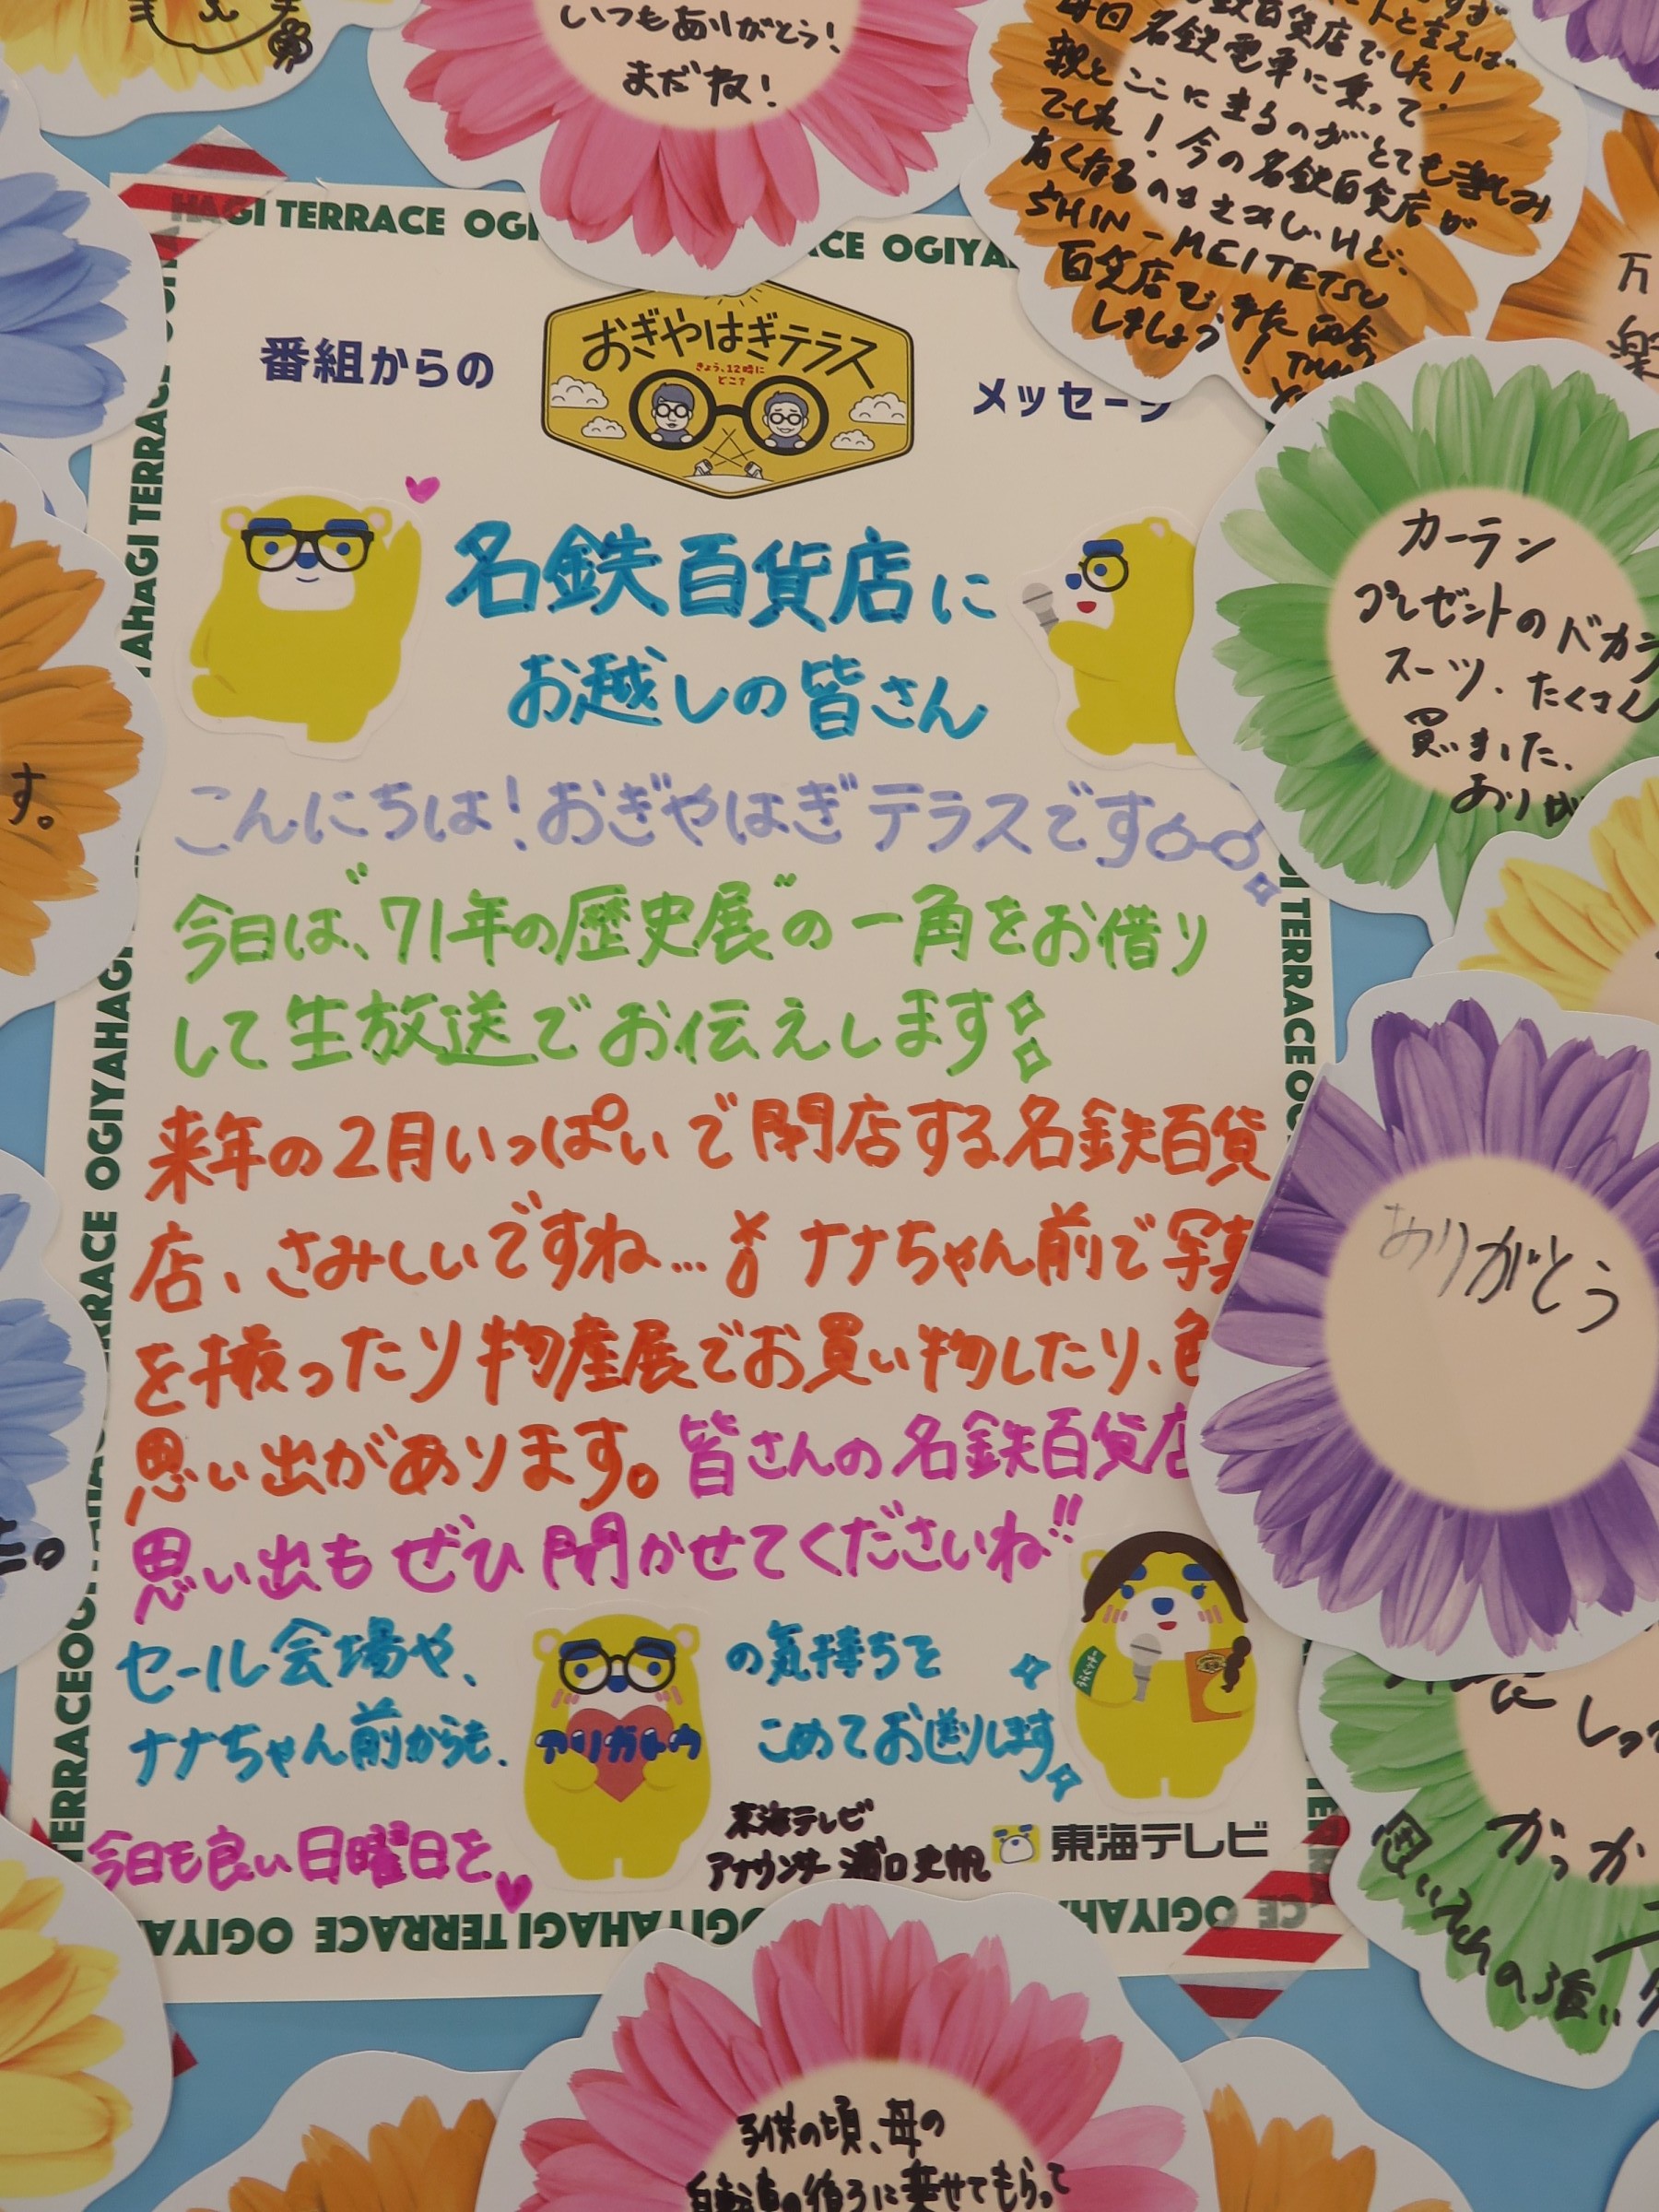 いつもありがとう!
まだね!
百貨店でした!
毎回名鉄電車に乗って
親とここに来るのがとても楽しみ
でした!今の名鉄百貨店が
なくなるのはさみしいけど、
SHIN-MEITETSU
百貨店でまた
しましょう!
HAGI TERRACE OGI
CE OGIYA
番組からの
おぎやはぎテラス
きょう、12時に
どこ?
メッセージ
名鉄百貨店に
お越しの皆さん
こんにちは!おぎやはぎテラスです
今日は、"71年の歴史展"の一角をお借り
して生放送でお伝えします
来年の2月いっぱいで閉店する名鉄百貨
店、さみしいですね…ナナちゃん前で写真
を撮ったり物産展でお買い物したり、色
思い出があります。皆さんの名鉄百貨店
思い出もぜひ聞かせてくださいね!!
セール会場や、
ナナちゃん前からも、
アリガトウ
の気持ちを
こめてお送りします
今日も良い日曜日を
東海テレビ
アナウンサー 浦口史帆
東海テレビ
カーラン
プレゼントのバカラ
スーツ、たくさん
買いました。
ありが
ありがとう
す。
しっ
がっか
思い入れの強い
子供の頃、母の
自転車の後ろに乗せてもらって